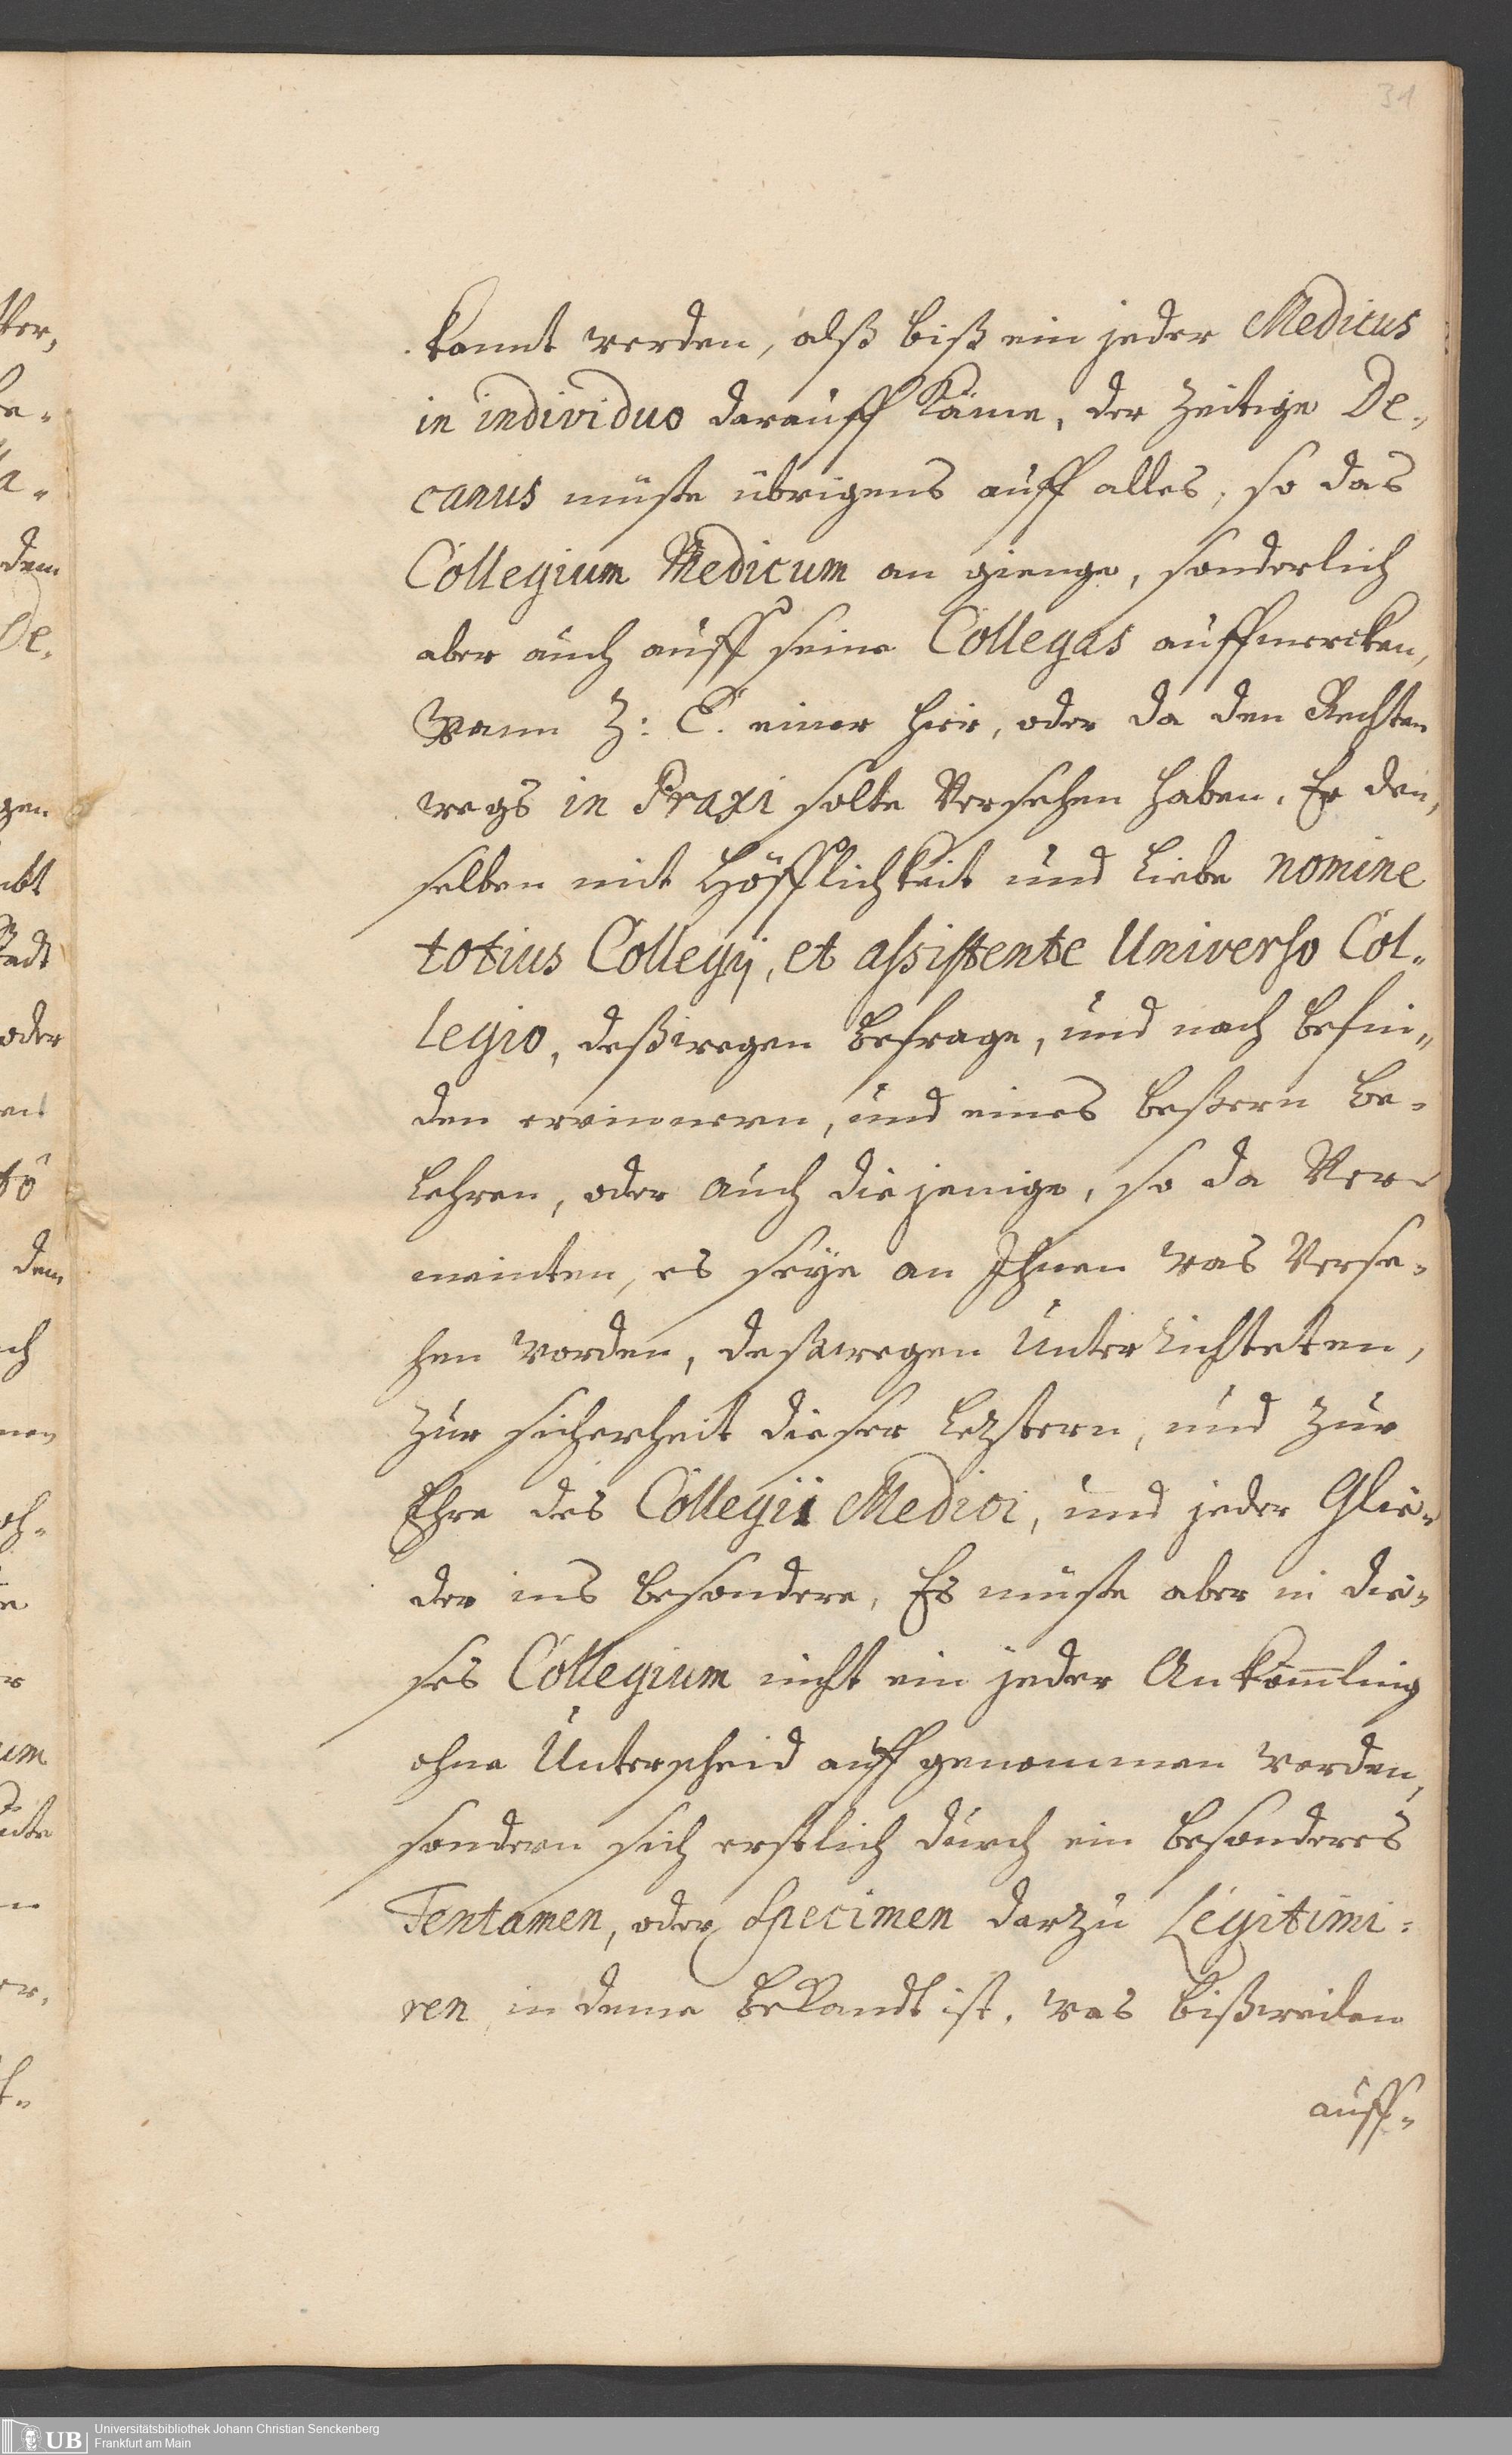 31
kannt werden, alß biß ein jeder Medicus
in individuo darauff käme, der Zeitige De-
canus müste übrigens auff alles, so das
Collegium Medicum an gienge, sonderlich
aber auch auff seine Collegas auffmercken,
Wann Z: E. einer hier, oder da den Rechten
wegs in Praxi solte Versehen haben, Er den-
selben mit Höfflichkeit und Liebe nomine
totius Collegij, et assistente Universo Col-
legio, deßwegen Befrage, und nach Befin-
den erinnern, und eines beßern Be-
lehren, oder auch diejenige, so da Ver-
meinten, es seye an Ihnen was Verse-
hen worden, deßwegen Unterrichteten,
Zur sicherheit dieser Leztern, und Zur
Ehre des Collegii Medici, und jeder Glie-
der ins besondere, Es müste aber in die-
ses Collegium nicht ein jeder Ankom̄ling
ohne Unterscheid auff genommen werden,
sondern sich erstlich durch ein besonderes
Tentamen, oder Specimen darzu Legitimi-
ren, in deme Bekandt ist, was bißweilen
auff-
dem
De-
gen
oder
dem
um
UB Universitätsbibliothek Johann Christian Senckenberg
Frankfurt am Main